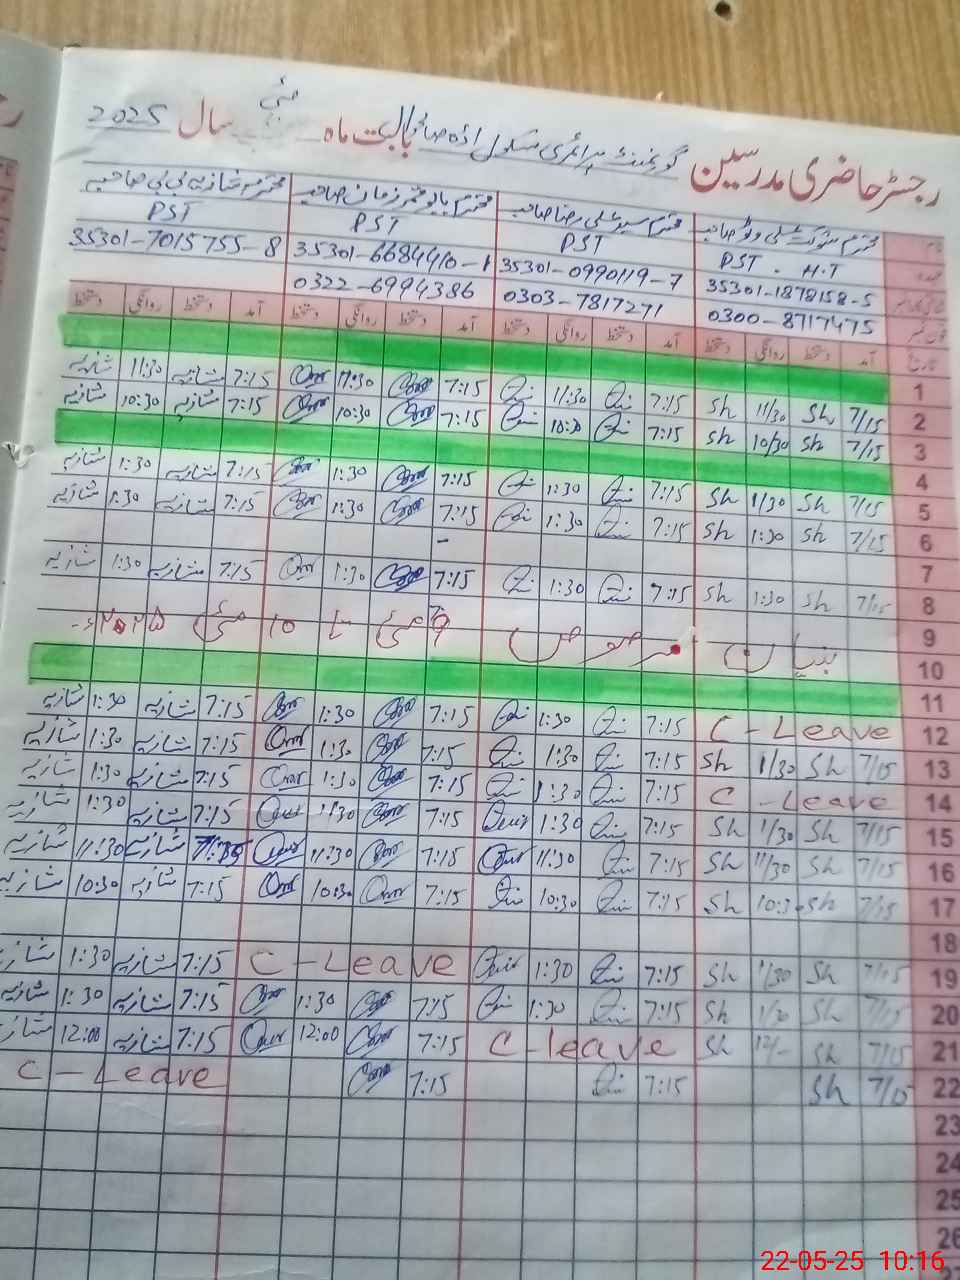 رجسٹر حاضری مدرسین گورنمنٹ پرائمری سکول اڈہ بابت ماہ مئی سال 2025
محترم شوکت علی صاحب محترم سید علی رضا صاحب محترم بابو محمد زمان صاحب محترمہ شازیہ بی بی صاحبہ
PST . H.T PST PST PST
35301-1878158-5 35301-0990119-7 35301-6684410-1 35301-7015755-8
0300-8717475 0303-7817271 0322-6994386
تاریخ آمد دستخط روانگی دستخط آمد دستخط روانگی دستخط آمد دستخط روانگی دستخط آمد دستخط روانگی دستخط
1
2 7/15 Sh 11/30 Sh 7:15 11:30 7:15 11:30 7:15 شازیہ 11:30 شازیہ
3 7/15 Sh 10/30 Sh 7:15 7:15 10:30 7:15 شازیہ 10:30 شازیہ
4
5 7/15 Sh 1/30 Sh 7:15 1:30 7:15 1:30 7:15 شازیہ 1:30 شازیہ
6 7/15 Sh 1:30 Sh 7:15 1:30 7:15 1:30 7:15 شازیہ 1:30 شازیہ
7
8 7/15 Sh 1:30 Sh 7:15 1:30 7:15 1:30 7:15 شازیہ 1:30 شازیہ
9 بنیان مرصوص مئی تا 10 مئی ۲۰۲۵ء
10
11
12 C-Leave 7:15 1:30 7:15 1:30 7:15 شازیہ 1:30 شازیہ
13 7/15 Sh 1/30 Sh 7:15 1:30 7:15 1:30 7:15 شازیہ 1:30 شازیہ
14 C-Leave 7:15 1:30 7:15 1:30 7:15 شازیہ 1:30 شازیہ
15 7/15 Sh 1/30 Sh 7:15 1:30 7:15 1:30 7:15 شازیہ 1:30 شازیہ
16 7/15 Sh 11/30 Sh 7:15 11:30 7:15 11:30 شازیہ 11:30 شازیہ
17 7/15 Sh 10:30 Sh 7:15 10:30 7:15 10:30 7:15 شازیہ 10:30 شازیہ
18
19 7/15 Sh 1/30 Sh 7:15 1:30 C-Leave 7:15 شازیہ 1:30 شازیہ
20 7/15 Sh 1/30 Sh 7:15 1:30 7:15 1:30 7:15 شازیہ 1:30 شازیہ
21 7/15 Sh 12/- Sh C-leave 7:15 12:00 7:15 شازیہ 12:00 شازیہ
22 7/15 Sh 7:15 7:15 C-Leave
23
24
25
26
22-05-25 10:16